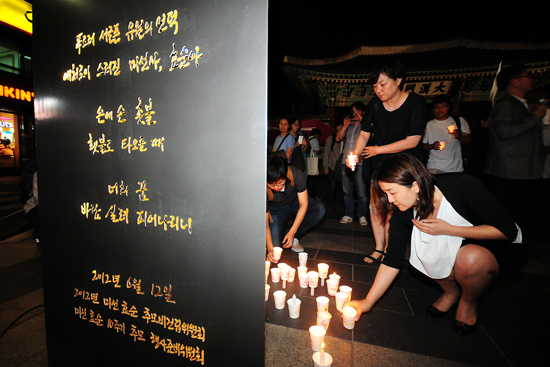 푸르러 서글픈 유월의 언덕
애처로이 스러진 미선아, 효순아
손에 손 촛불
횃불로 타오를 때
너희 꿈
바람 실려 피어나리니!
2012년 6월 12일
2012년 미선 효순 추모비건립위원회
미선 효순 10주기 추모 행사준비위원회
NKIN'